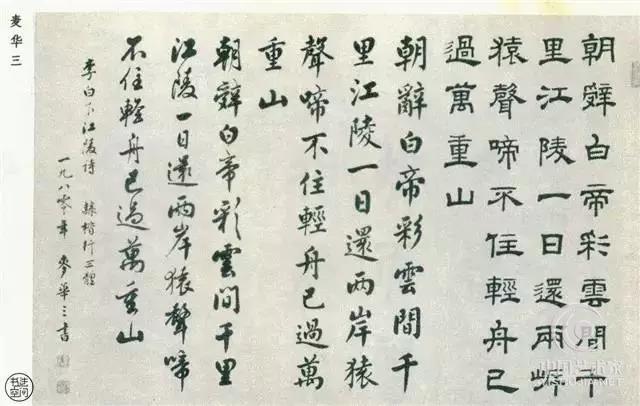 麦华三
朝辭白帝彩雲間千
里江陵一日還兩岸
猿聲啼不住輕舟已
過萬重山
朝辭白帝彩雲間千
里江陵一日還兩岸猿
聲啼不住輕舟已過萬
重山
朝辭白帝彩雲間千里
江陵一日還兩岸猿聲啼
不住輕舟已過萬重山
李白下江陵诗 隸楷行三體
一九八零年 麥華三書
书法空间
中国艺术家